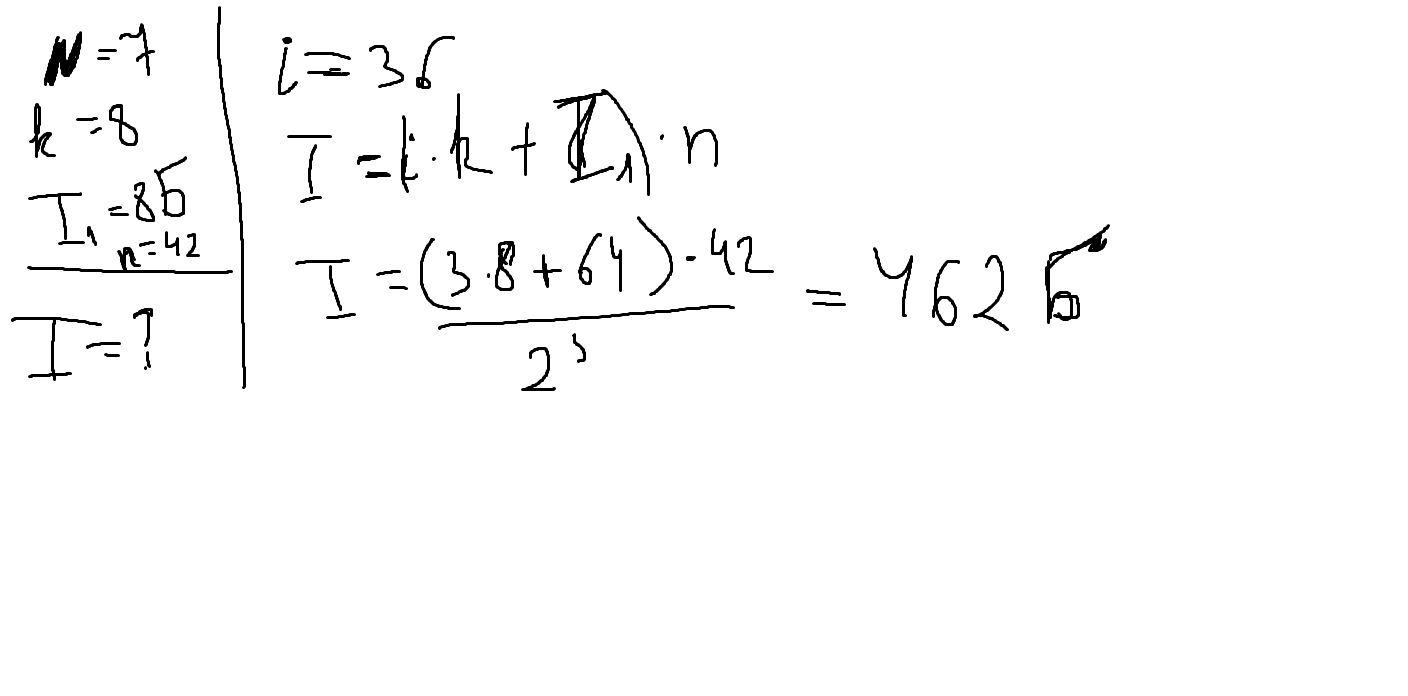 N = 7
k = 8
I₁ = 8Б
n = 42
I = ?
i = 3б
I = (i · k + I₁) · n
I = (3 · 8 + 64) · 42 / 2³ = 462 Б